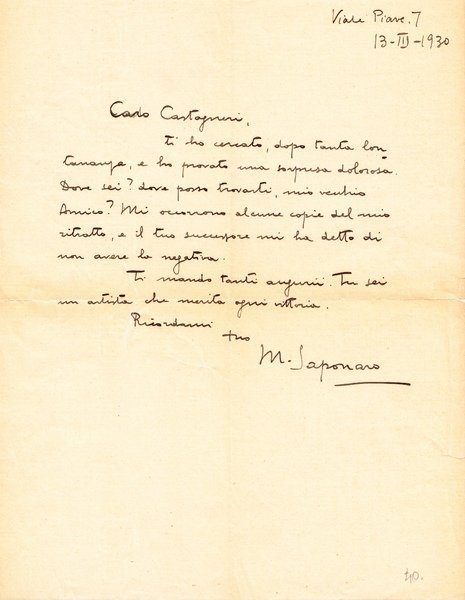 Viale Piave, 7
13-III-1930
Caro Castagneri,
ti ho cercato, dopo tanta lon-
tananza, e ho provato una sorpresa dolorosa.
Dove sei? dove posso trovarti, mio vecchio
Amico? Mi occorrono alcune copie del mio
ritratto, e il tuo successore mi ha detto di
non avere la negativa.
Ti mando tanti augurii. Tu sei
un artista che merita ogni vittoria.
Ricordami
tuo
M. Saponaro
40.